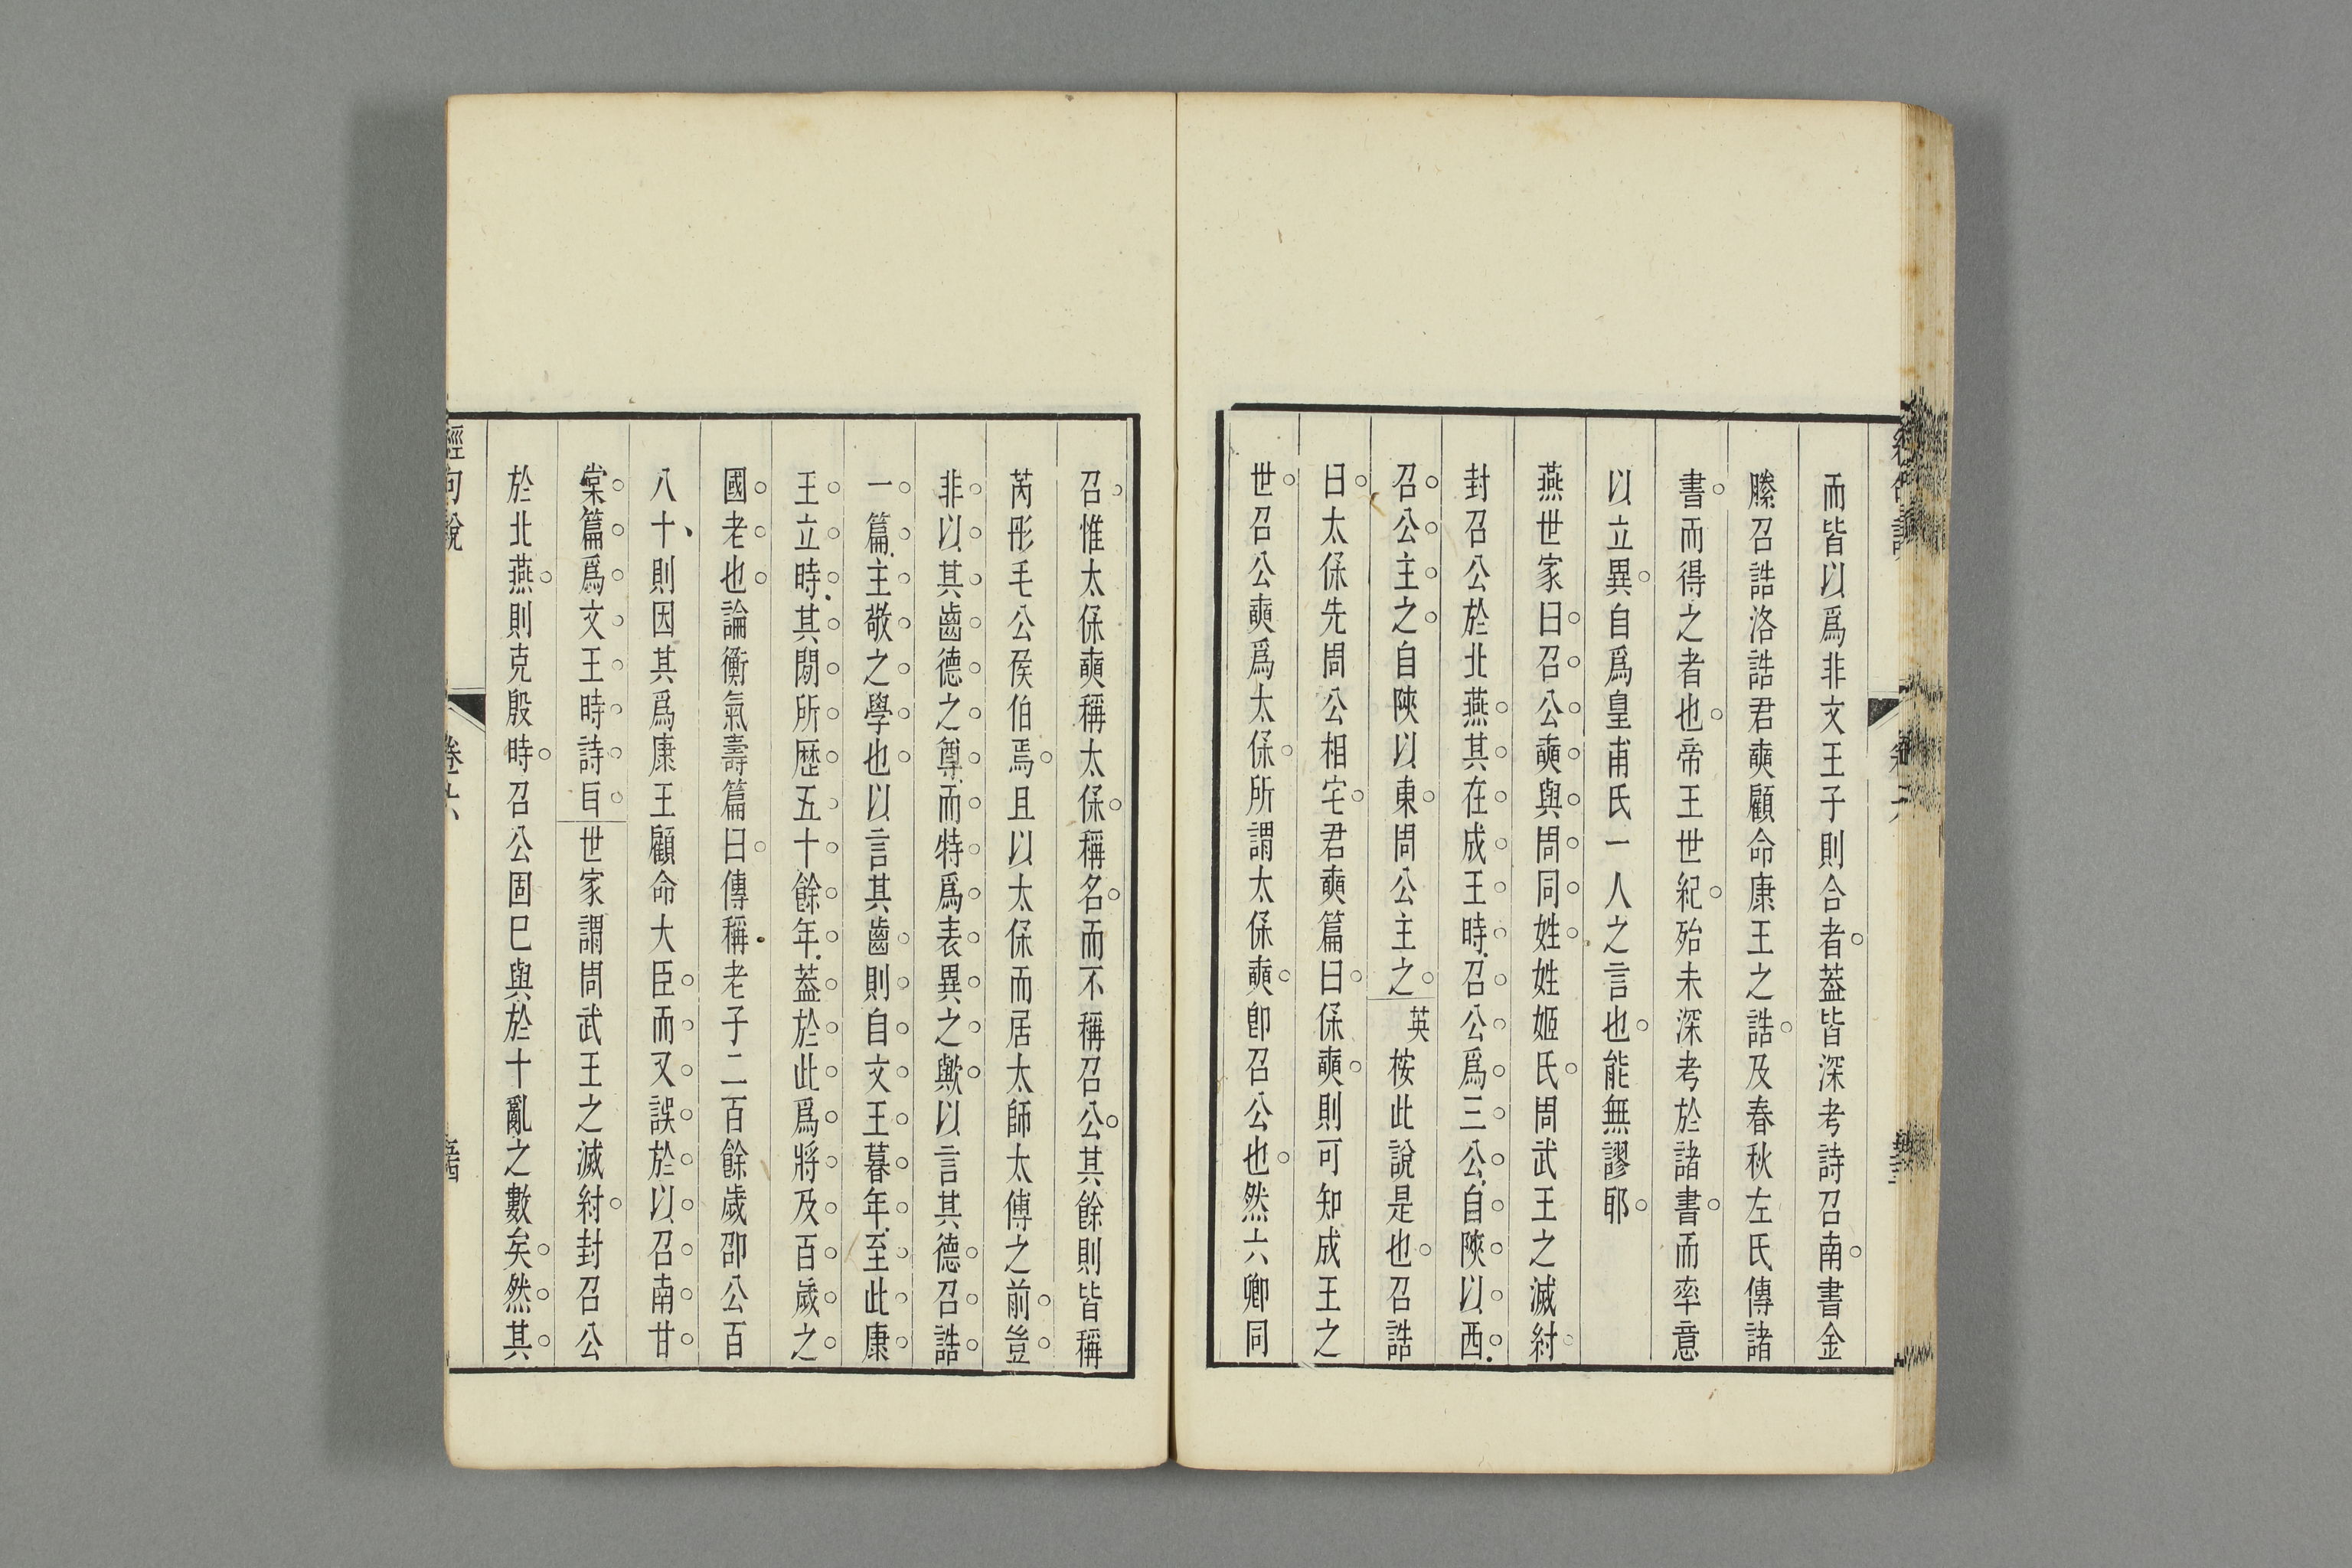 而皆以爲非文王子則合者蓋皆深考詩召南書金
縢召誥洛誥君奭顧命康王之誥及春秋左氏傳諸
書而得之者也帝王世紀殆未深考於諸書而率意
以立異自爲皇甫氏一人之言也能無謬耶
燕世家曰召公奭與周同姓姓姬氏周武王之滅紂
封召公於北燕其在成王時召公爲三公自陝以西
召公主之自陝以東周公主之英桉此說是也召誥
曰太保先周公相宅君奭篇曰保奭則可知成王之
世召公奭爲太保所謂太保奭卽召公也然六卿同
召惟太保奭稱太保稱名而不稱召公其餘則皆稱
芮彤毛公矦伯焉且以太保而居太師太傅之前豈
非以其齒德之尊而特爲表異之歟以言其德召誥
一篇主敬之學也以言其齒則自文王暮年至此康
王立時其閒所歷五十餘年蓋於此爲將及百歲之
國老也論衡氣壽篇曰傳稱老子二百餘歲邵公百
八十則因其爲康王顧命大臣而又誤於以召南甘
棠篇爲文王時詩𦣞世家謂周武王之滅紂封召公
於北燕則克殷時召公固巳與於十亂之數矣然其
經句說
卷六